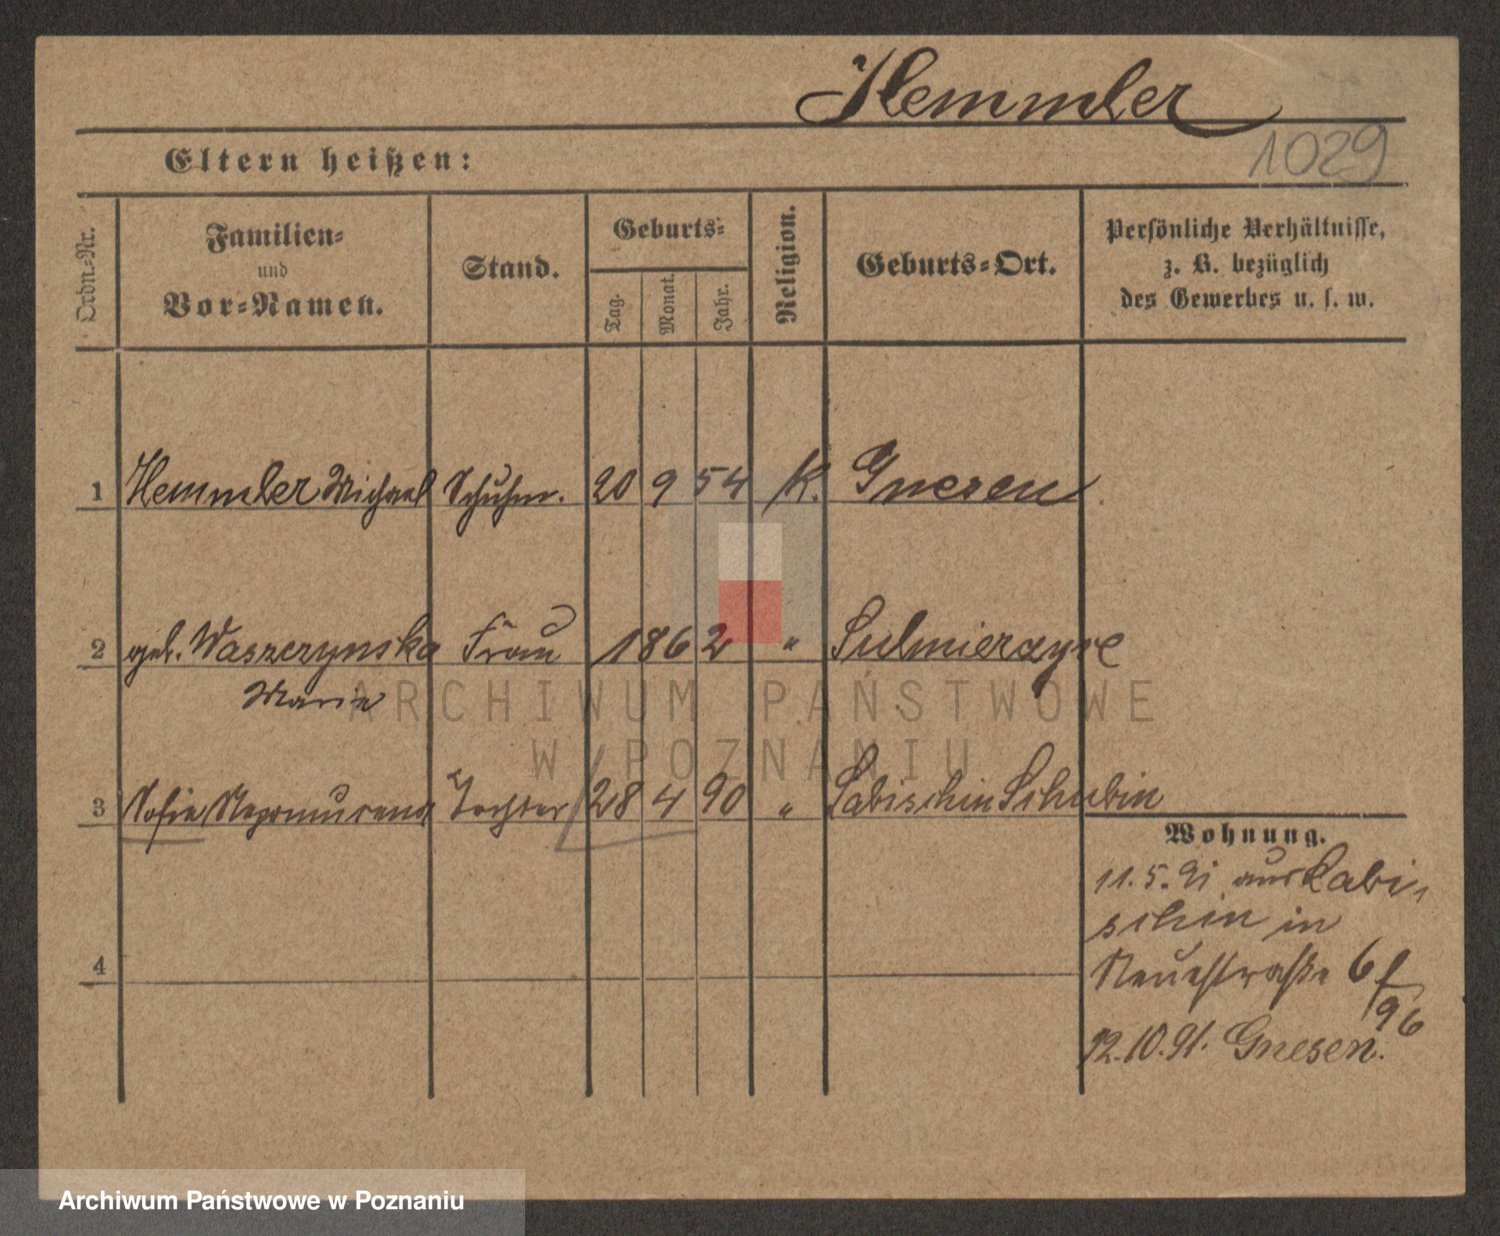 Hemmler
1029
Eltern heißen:
Ordn.-Nr.
Familien-
und
Vor-Namen.
Stand.
Geburts-
Tag.
Monat.
Jahr.
Religion.
Geburts-Ort.
Persönliche Verhältnisse,
z. B. bezüglich
des Gewerbes u. s. w.
1 Hemmler Michael Schuhm. 20 9 54 K. Gnesen
2 geb. Waszczynska Frau 1862 " Sulmierzyce
Marie
3 Sofie Nepomucena Tochter 28 4 90 " Labischin Schubin
Wohnung.
11.5.91 aus Labi-
schin in
Neuestraße 6
96
4
12.10.91. Gnesen.
ARCHIWUM PAŃSTWOWE
W POZNANIU
Archiwum Państwowe w Poznaniu